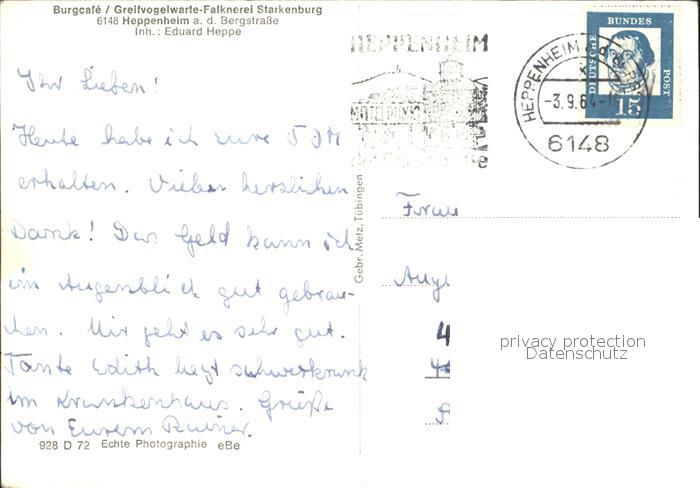 Burgcafé / Greifvogelwarte-Falknerei Starkenburg
6148 Heppenheim a. d. Bergstraße
Inh.: Eduard Heppe
Ihr Lieben!
Heute habe ich eure 5 DM
erhalten. Vielen herzlichen
Dank! Das Geld kann ich
im Augenblick gut gebrau-
chen. Mir geht es sehr gut.
Tante Edith liegt schwerkrank
im Krankenhaus. Grüße
von Eurem Rainer.
928 D 72 Echte Photographie eBe
Gebr. Metz, Tübingen
HEPPENHEIM
HEPPENHEIM
-3.9.64-1
6148
DEUTSCHE
BUNDES
POST
15
Frau
4
privacy protection
Datenschutz